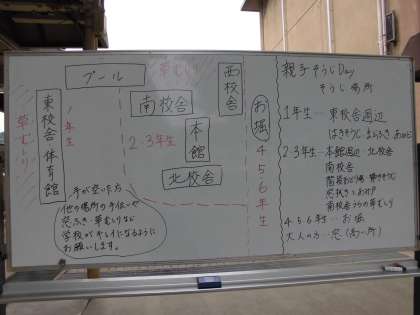 プール
草むしり
西校舎
南校舎
お堀
東校舎
体育館
草むしり
1年生
2・3年生
本館
北校舎
4 5 6年生
手が空いた方
他の場所の手伝いや
窓ふき・草むしりなど
学校がキレイになるように
お願いします。
親子そうじDay
そうじ場所
1年生…東校舎周辺
2・3年生…本館周辺・北校舎
南校舎
南校舎うらの草むしり
4 5 6年生…お堀
大人の方…窓(高い所)